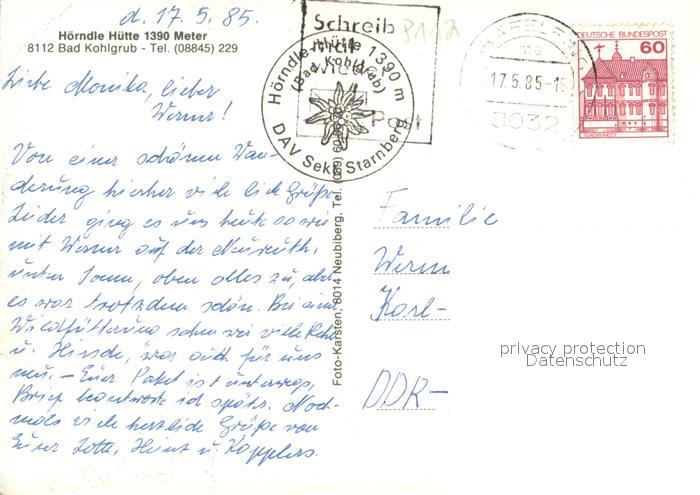 d. 17. 5. 85.
Hörndle Hütte 1390 Meter
8112 Bad Kohlgrub - Tel. (08845) 229
Liebe Monika, lieber
Werner!
Von einer schönen Wan-
derung hierher viele lb. Grüße
Leider ging es uns heute so wie
mit Werner auf der Neureuth,
unter Sonne, oben alles zu, aber
es war trotzdem schön. Bei einer
Wildfütterung sahen wir viele Rehe
u. Hirsche, war auch für uns
neu. – Euer Paket ist unterwegs,
Brief beantworte ich später. Noch-
mals viele herzliche Grüße von
Eurer Lotte, Heinz u. Kopplers.
Schreib
mal
wieder
Post
8112
Hörndle-Hütte 1390 m
(Bad Kohlgrub)
DAV Sekt. Starnberg
17.5.85-18
8032
DEUTSCHE BUNDESPOST
60
Foto-Karsten, 8014 Neubiberg, Tel. (089) 60
Familie
Werner
Karl-
DDR-
privacy protection
Datenschutz